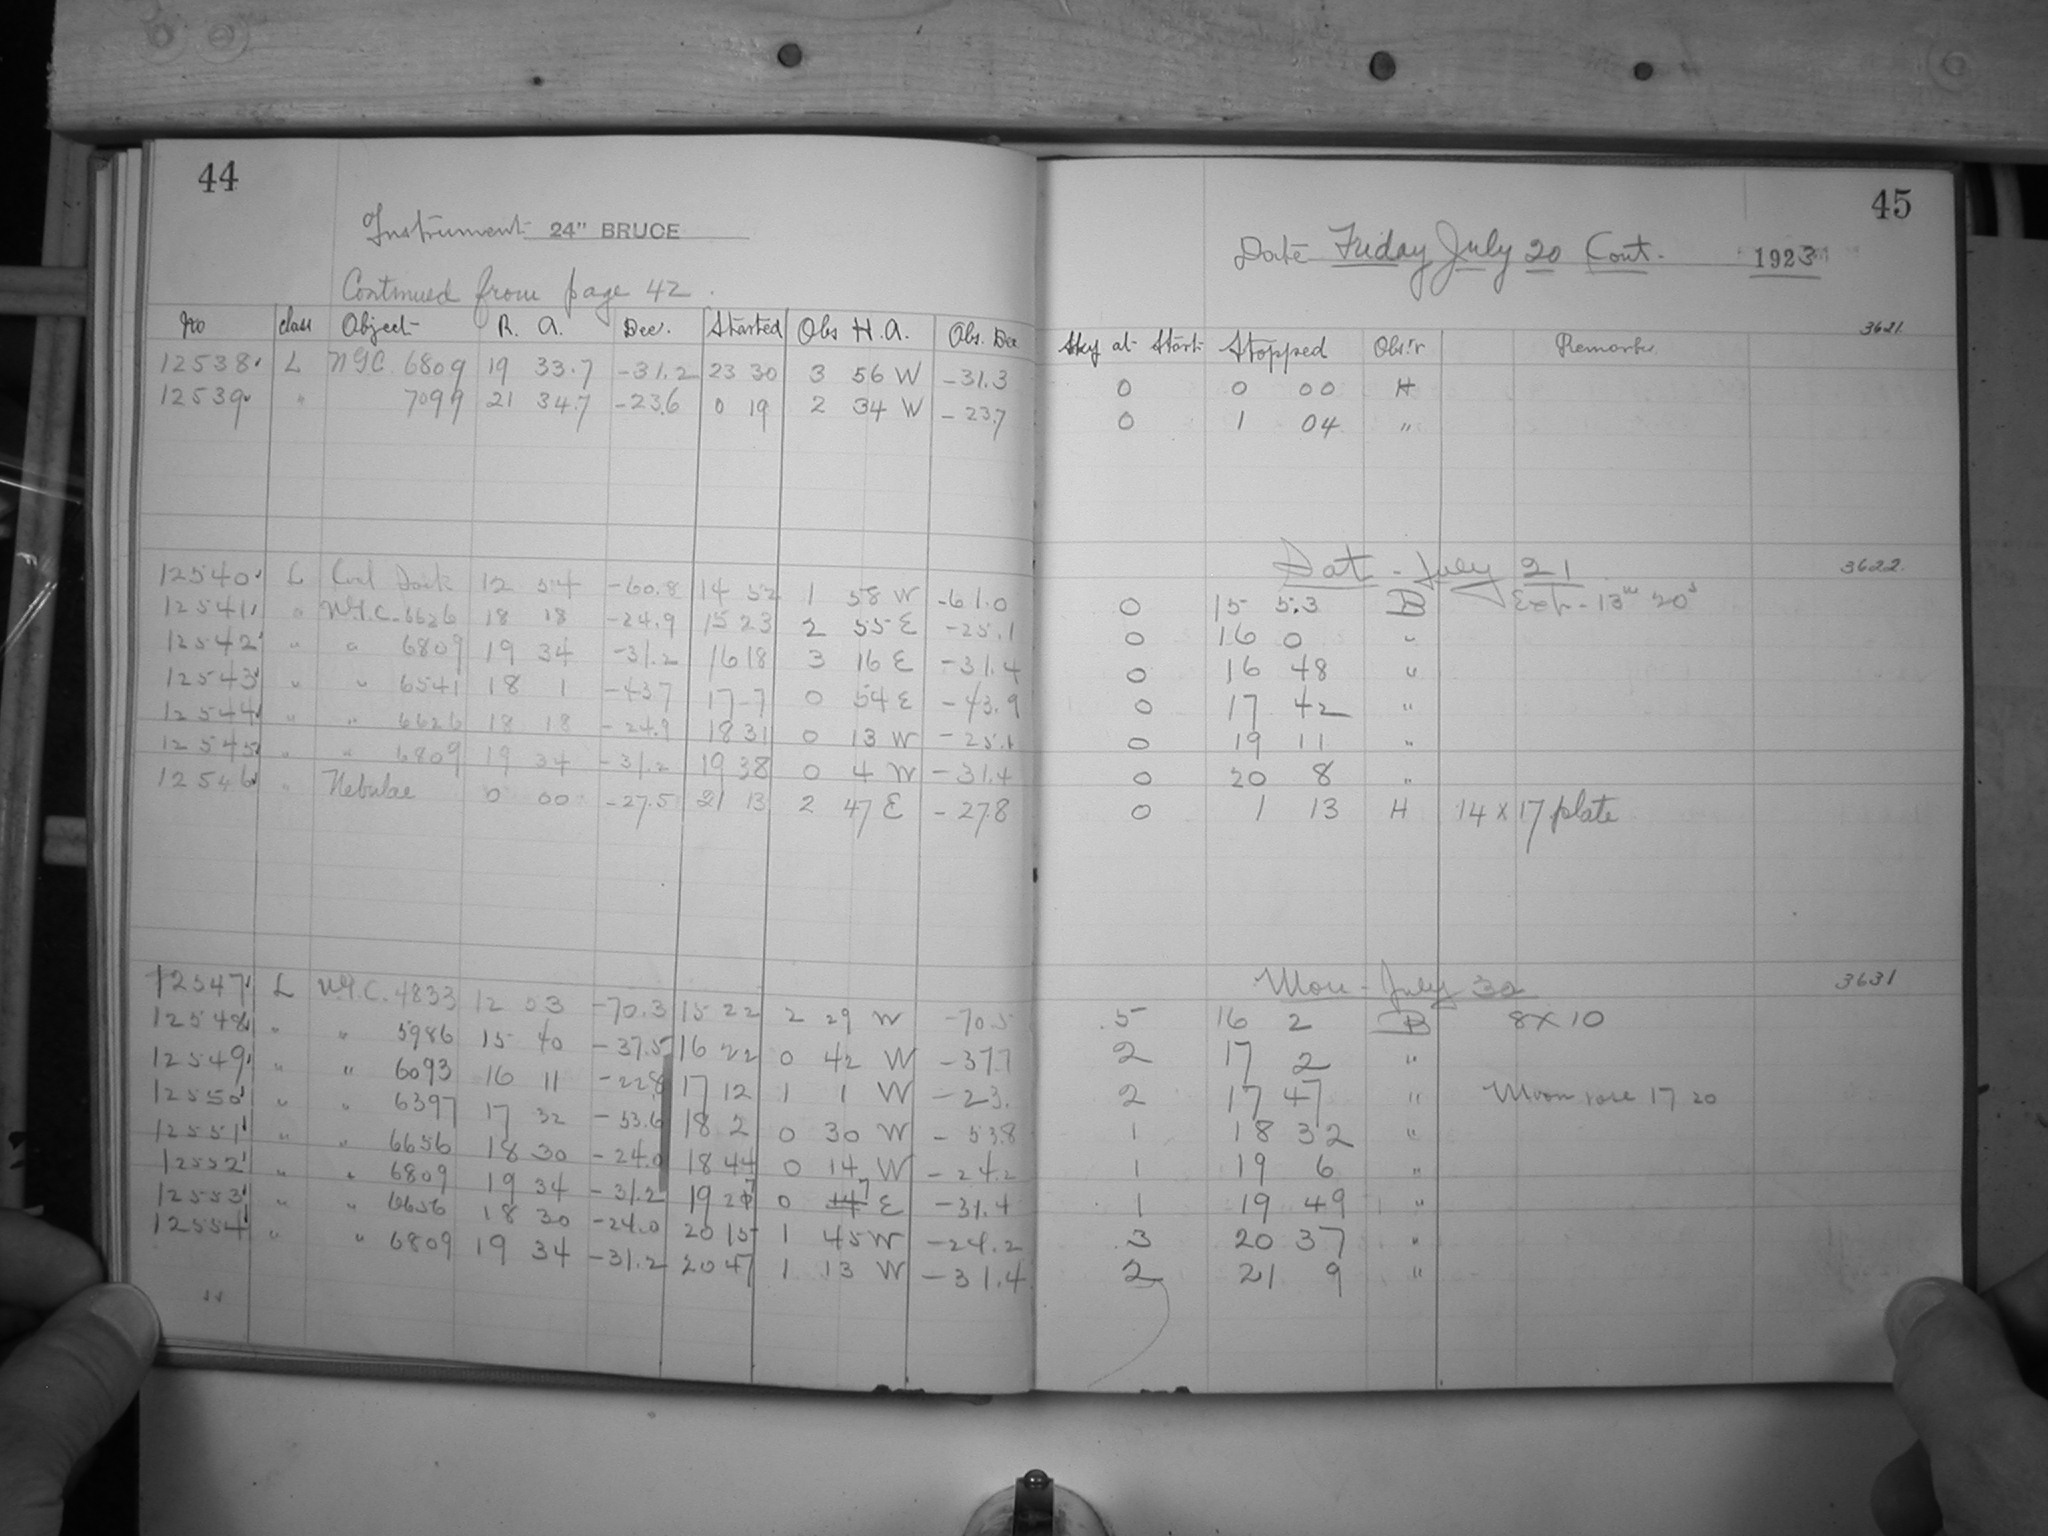 44
Instrument 24" BRUCE
Continued from page 42.
No class Object R. A. Dec. Started Obs H. A. Obs. Dec
12538 L NGC 6809 19 33.7 -31.2 23 30 3 56 W -31.3
12539 " 7099 21 34.7 -23.6 0 19 2 34 W -23.7
12540 L Coal Sack 12 54 -60.8 14 52 1 58 W -61.0
12541 " N.G.C. 6626 18 18 -24.9 15 23 2 55 E -25.1
12542 " " 6809 19 34 -31.2 16 18 3 16 E -31.4
12543 " " 6541 18 1 -43.7 17 7 0 54 E -43.9
12544 " " 6626 18 18 -24.9 18 31 0 13 W -25.1
12545 " " 6809 19 34 -31.2 19 38 0 4 W -31.4
12546 " Nebulae 0 00 -27.5 21 13 2 47 E -27.8
12547 L N.G.C. 4833 12 53 -70.3 15 22 2 29 W -70.5
12548 " " 5986 15 40 -37.5 16 22 0 42 W -37.7
12549 " " 6093 16 11 -22.8 17 12 1 1 W -23.
12550 " " 6397 17 32 -53.6 18 2 0 30 W -53.8
12551 " " 6656 18 30 -24.0 18 44 0 14 W -24.2
12552 " " 6809 19 34 -31.2 19 27 0 7 E -31.4
12553 " " 6656 18 30 -24.0 20 15 1 45 W -24.2
12554 " " 6809 19 34 -31.2 20 47 1 13 W -31.4
"
45
Date Friday July 20 Cont. 1923
3621
Sky at Start Stopped Obs'r Remarks
0 0 00 H
0 1 04 "
Sat - July 21 3622
0 15 53 B Exp - 13m 20s
0 16 0 "
0 16 48 "
0 17 42 "
0 19 11 "
0 20 8 "
0 1 13 H 14 x 17 plate
Mon - July 30 3631
.5 16 2 B 8 X 10
2 17 2 "
2 17 47 " Moon rose 17 20
1 18 32 "
1 19 6 "
1 19 49 "
3 20 37 "
2 21 9 "